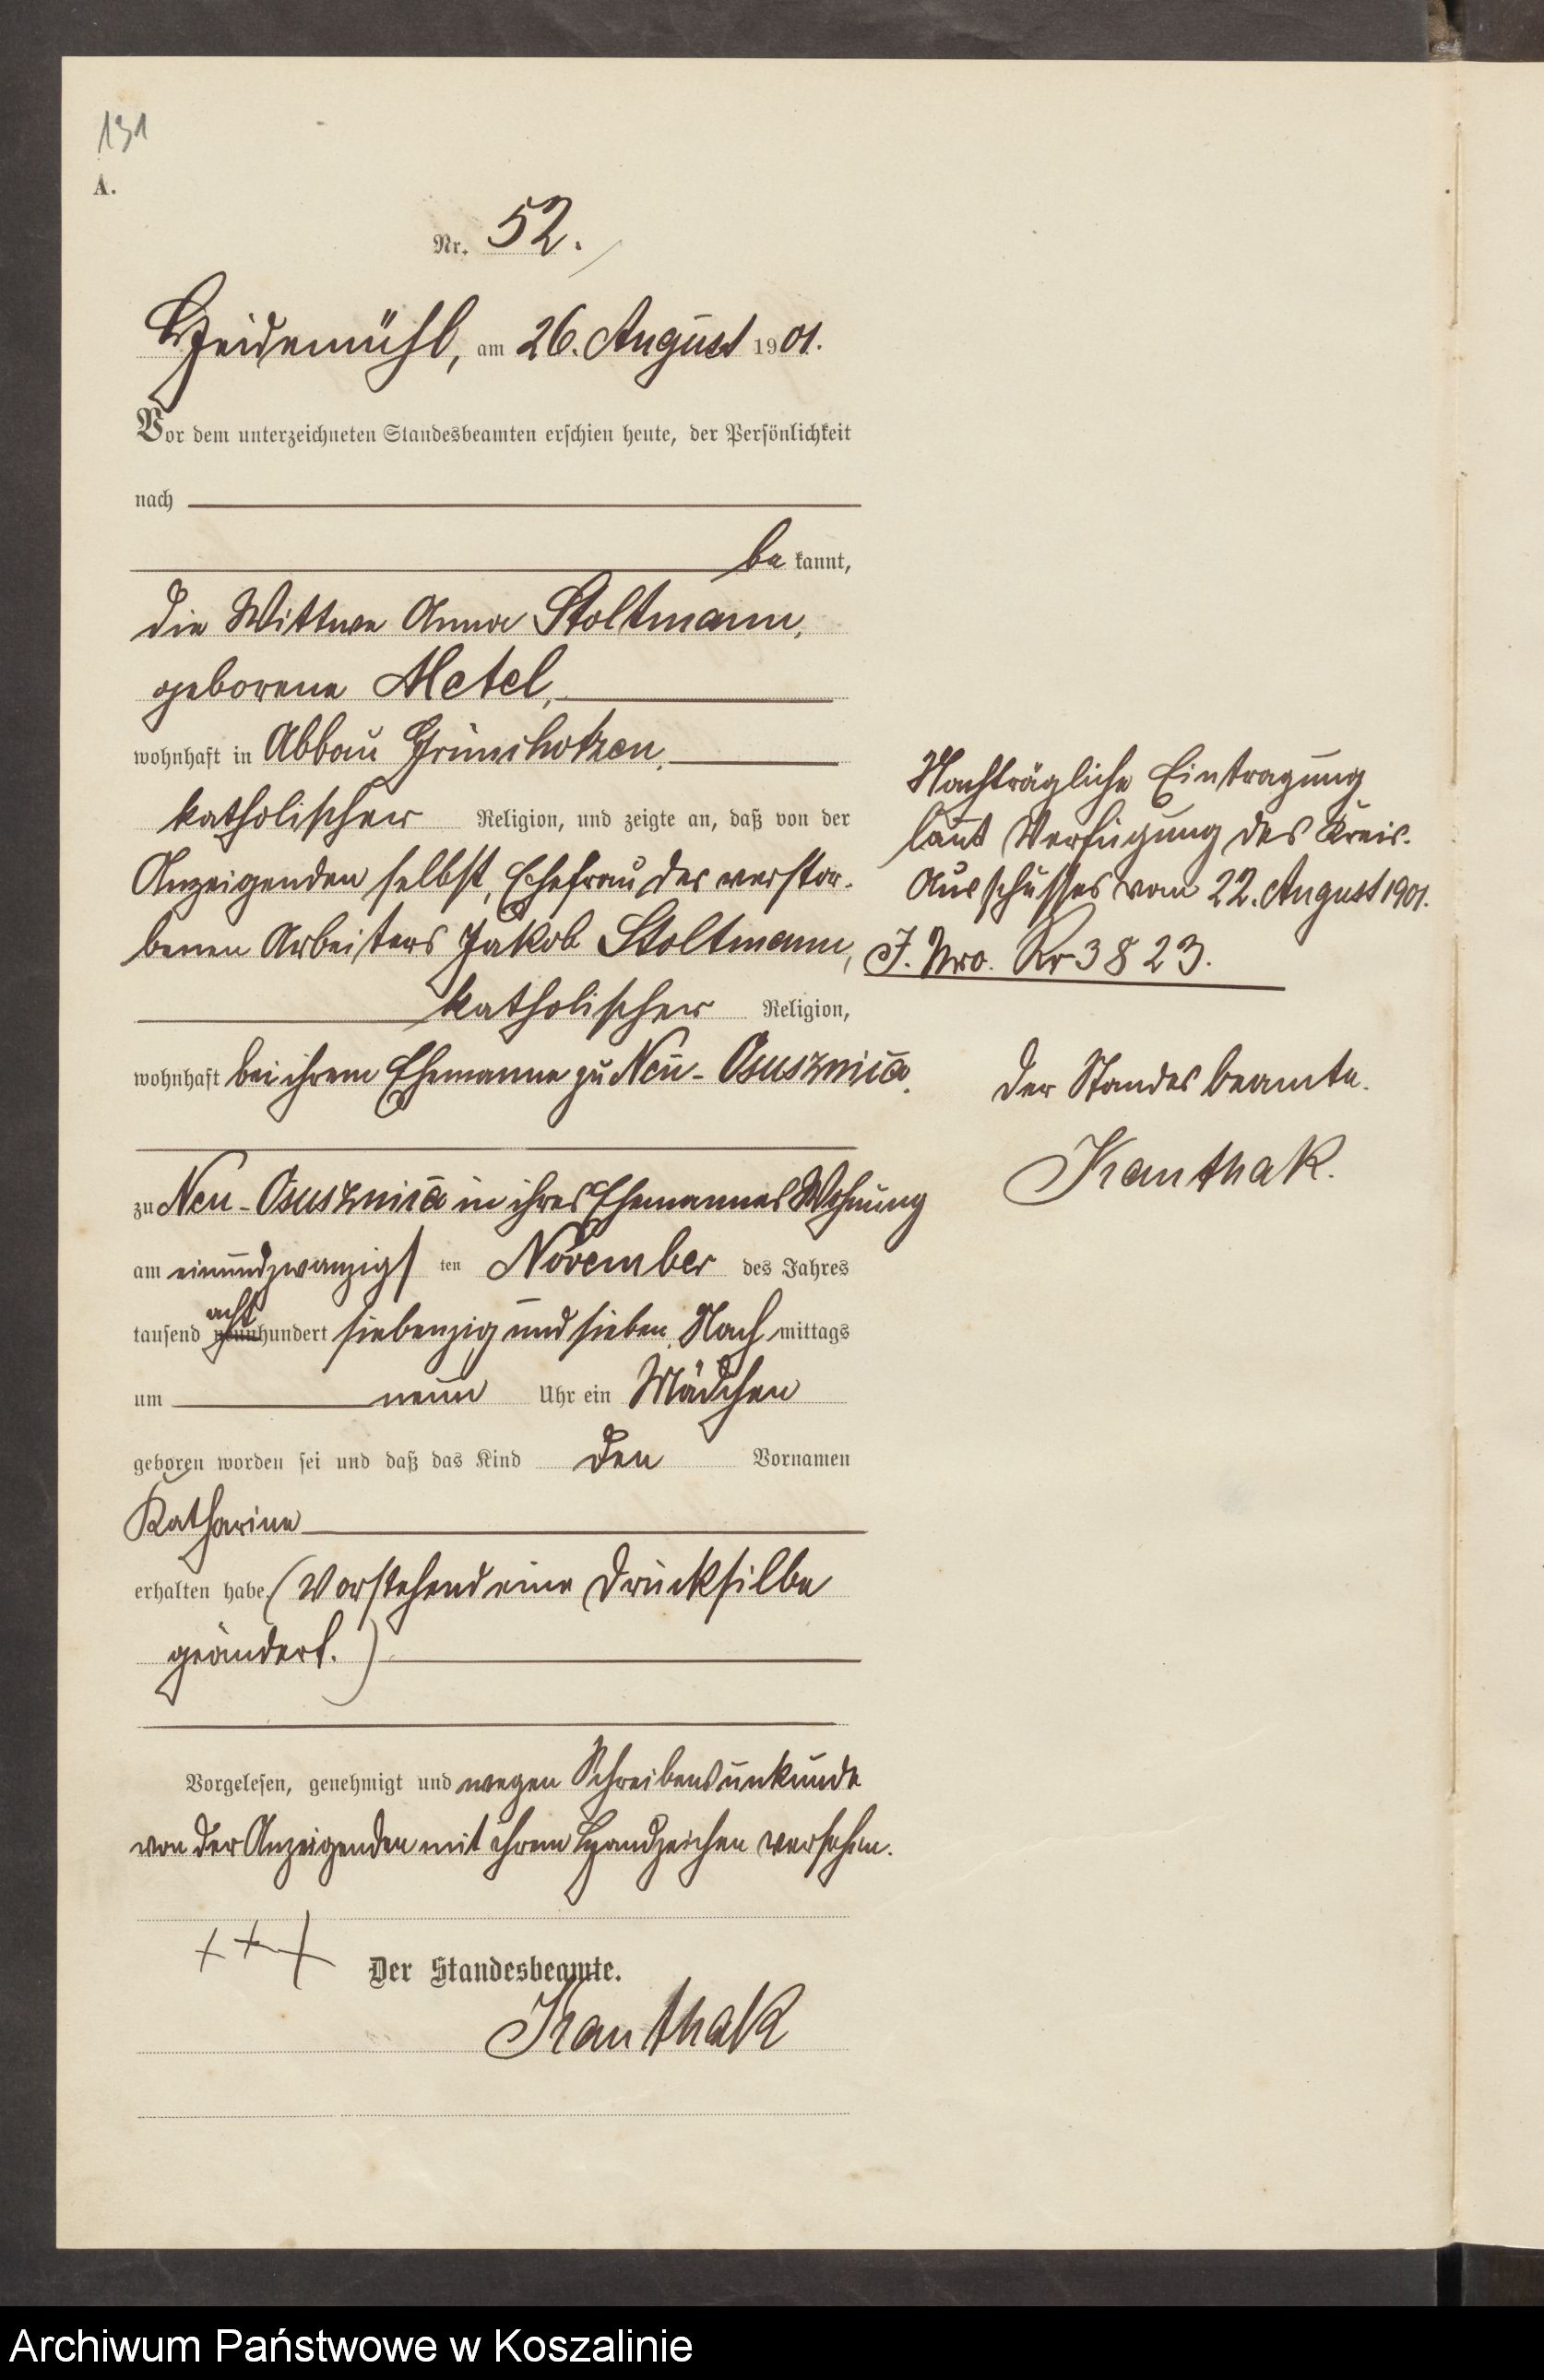 131
A.
Nr. 52.
Heidemühl, am 26. August 1901.
Vor dem unterzeichneten Standesbeamten erschien heute, der Persönlichkeit
nach
be kannt,
die Wittwe Anna Stoltmann,
geborene Metel,
wohnhaft in Abbau Grünchotzen,
katholischer Religion, und zeigte an, daß von der
Anzeigenden selbst, Ehefrau des verstor-
benen Arbeiters Jakob Stoltmann,
katholischer Religion,
wohnhaft bei ihrem Ehemanne zu Neu-Osusznica,
zu Neu-Osusznica in ihres Ehemannes Wohnung
am einundzwanzigs ten November des Jahres
acht
tausend neunhundert siebenzig und sieben, Nach mittags
um neun Uhr ein Mädchen
geboren worden sei und daß das Kind den Vornamen
Katharine
erhalten habe (Vorstehend eine Drucksilbe
geändert.)
Vorgelesen, genehmigt und wegen Schreibensunkunde
von der Anzeigenden mit ihrem Handzeichen versehen.
+++
Der Standesbeamte.
Kanthak
Nachträgliche Eintragung
laut Verfügung des Kreis-
Ausschusses vom 22. August 1901.
J. Nro. Kr 3823.
Der Standesbeamte.
Kanthak.
Archiwum Państwowe w Koszalinie